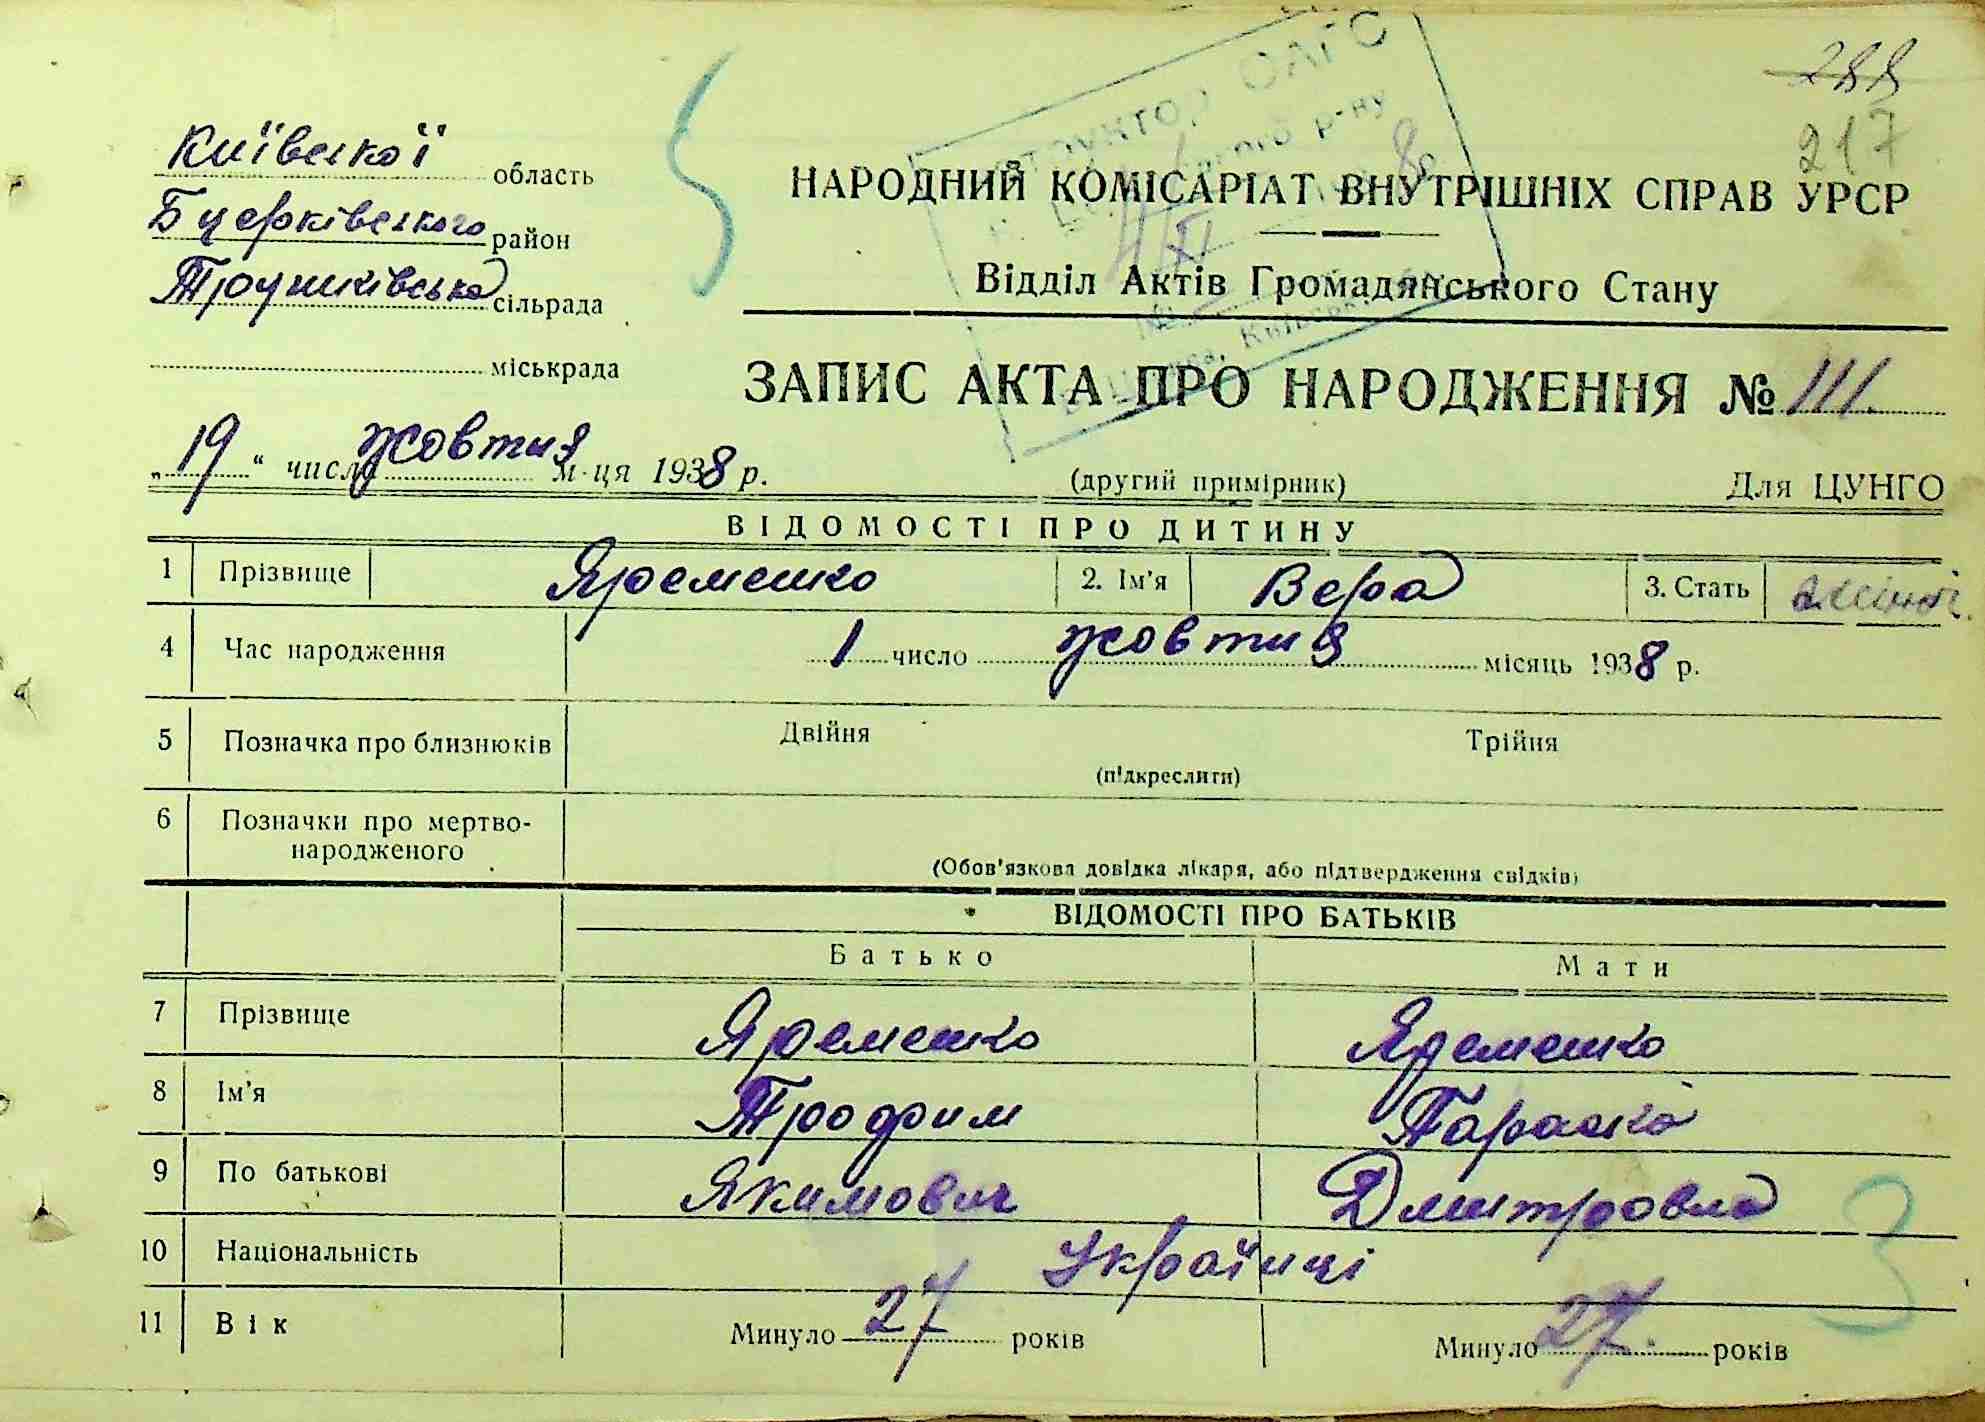 288
217
Київської область
Б церківського район
Трушківська сільрада
міськрада
НАРОДНИЙ КОМІСАРІАТ ВНУТРІШНІХ СПРАВ УРСР
Відділ Актів Громадянського Стану
ЗАПИС АКТА ПРО НАРОДЖЕННЯ № 111.
„19“ число жовтня м-ця 1938 р.
(другий примірник) Для ЦУНГО
ВІДОМОСТІ ПРО ДИТИНУ
1 Прізвище Яременко 2. Ім'я Вера 3. Стать жіноч.
4 Час народження 1 число жовтня місяць 1938 р.
5 Позначка про близнюків Двійня Трійня
(підкреслити)
6 Позначки про мертво-
народженого
(Обов'язкова довідка лікаря, або підтвердження свідків)
ВІДОМОСТІ ПРО БАТЬКІВ
Батько Мати
7 Прізвище Яременко Яременко
8 Ім'я Трофим Параска
9 По батькові Якимович Дмитровна
10 Національність Українці
11 Вік Минуло 27 років Минуло 27. років
3